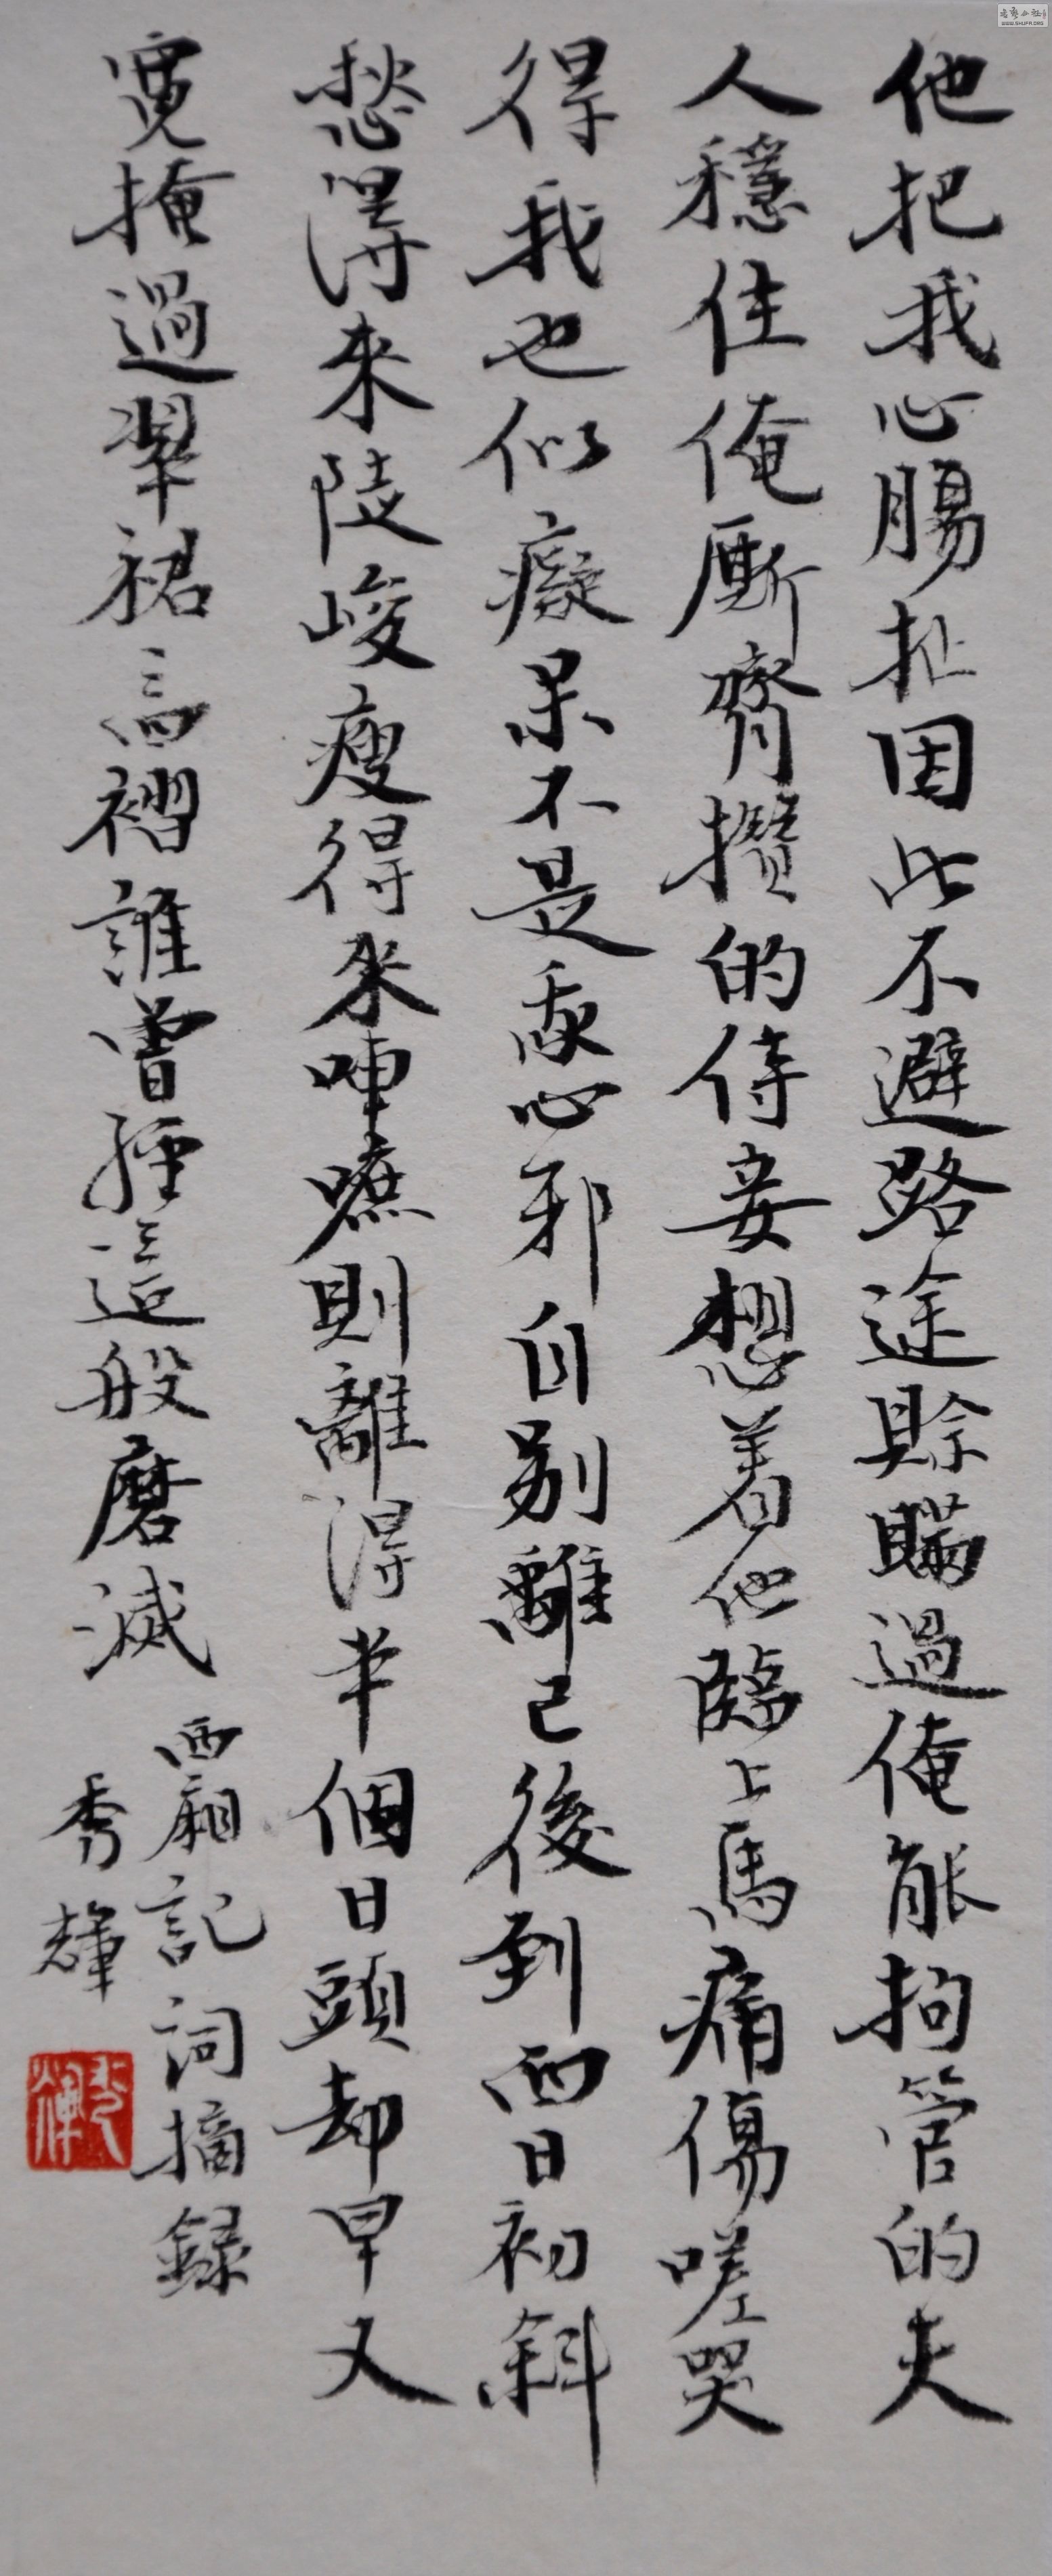 他把我心腸扯因此不避路途賒瞞過俺能拘管的夫
人穩住俺廝齊攢的侍妾想着他臨上馬痛傷嗟哭
得我也似癡呆不是憂心邪自别離已後到西日初斜
愁得來陡峻瘦得來唓嗻則離得半個日頭却早又
寬掩過翠裙三四褶誰曾經這般磨滅
西厢記詞摘録
秀輝
秀輝
WWW.SHUFA.ORG